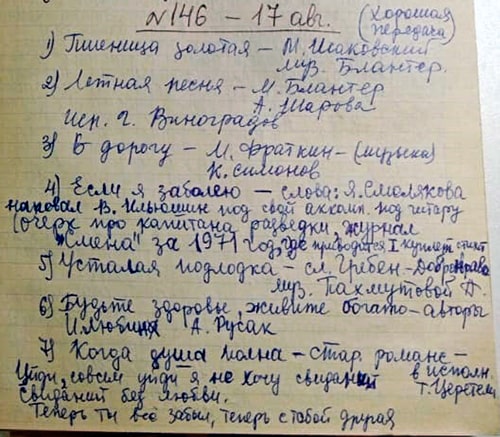 №146 – 17 авг. (Хорошая передача)
1) Пшеница золотая – М. Исаковский
муз. Блантер.
2) Летная песня – М. Блантер
А. Шарова
Исп. Г. Виноградов
3) В дорогу – М. Фраткин – (музыка)
К. Симонов
4) Если я заболею – слова: Я. Смолякова
напевал В. Ильюшин под свой аккомп. под гитару
(очерк про капитана разведки, журнал
"Смена" за 1971 год, где приводится I куплет стих
5) Усталая подлодка – сл. Гребен-Добронрава
муз. Пахмутовой
6) Будьте здоровы, живите богато – авторы
И. Любин А. Русак
7) Когда душа полна – стар. романс –
в исполн.
Уйди, совсем уйди я не хочу свиданий
Т. Церетели
Свиданий без любви.
Теперь ты всё забыл, теперь с тобой другая